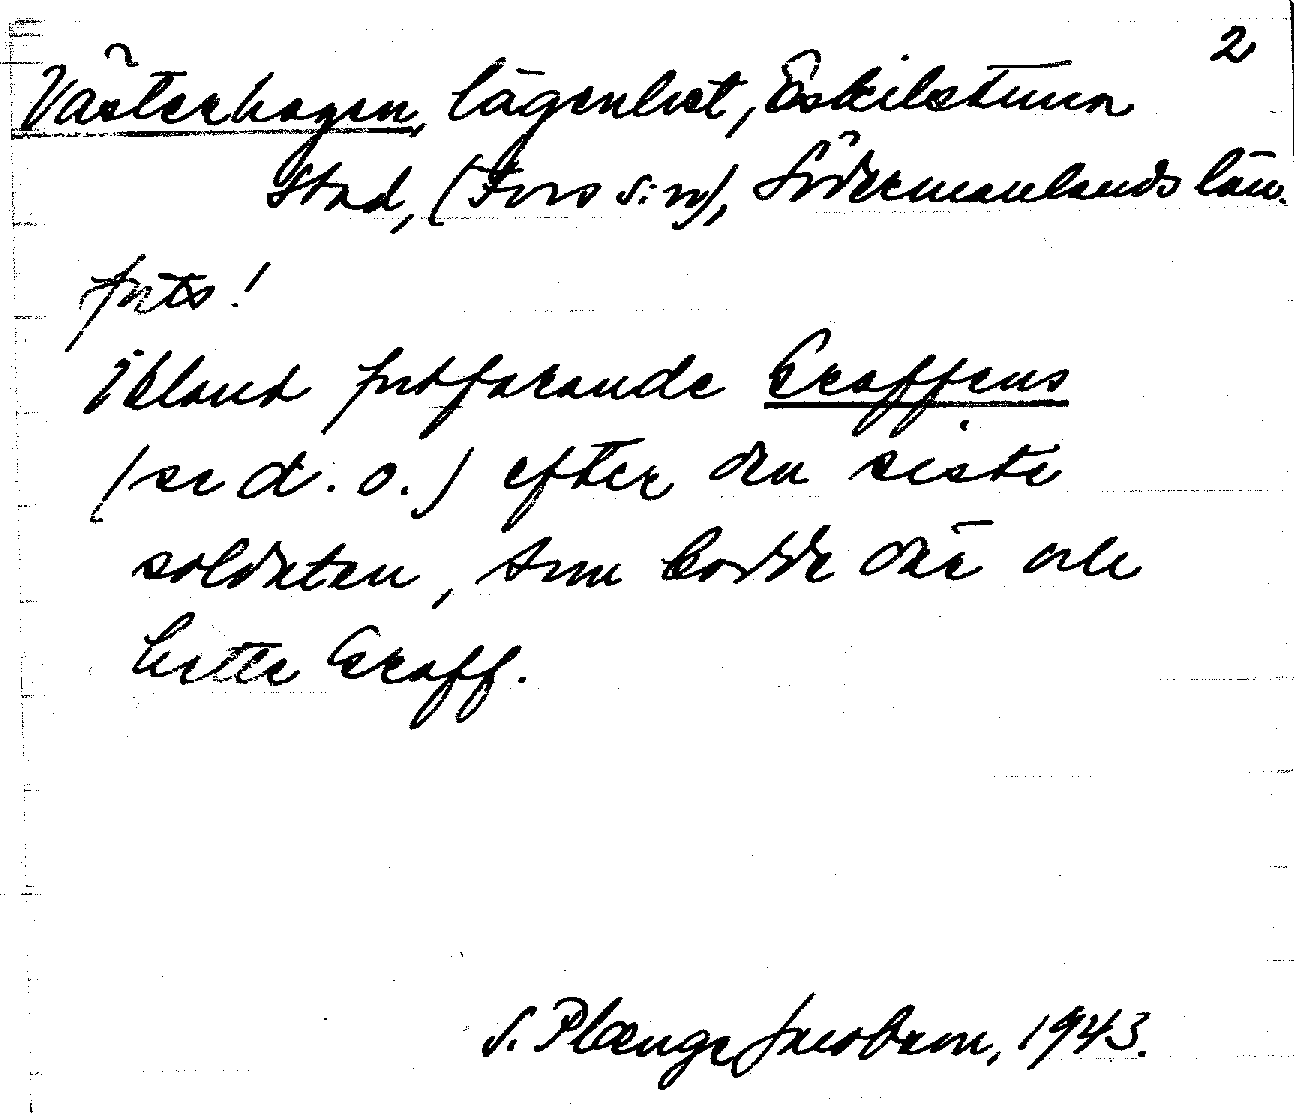 2
Västerhagen, lägenhet, Eskilstuna
Stad, (Fors s:n), Södermanlands län.
forts!
Ibland fortfarande Graffens
(se d. o.) efter den siste
soldaten, som bodde där och
hette Graff.
S. Plænge Jacobson, 1943.